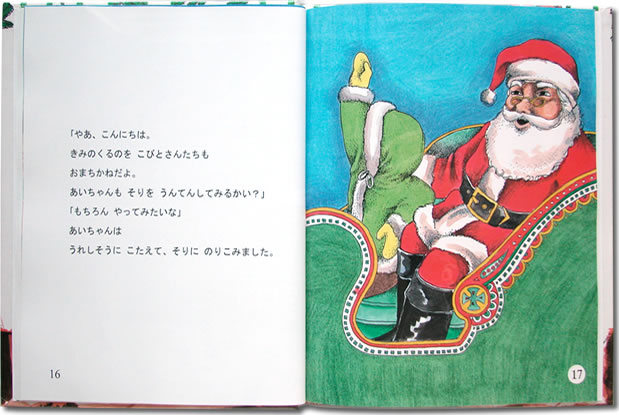 「やあ、こんにちは。
きみのくるのを こびとさんたちも
おまちかねだよ。
あいちゃんも そりを うんてんしてみるかい？」
「もちろん やってみたいな」
あいちゃんは
うれしそうに こたえて、そりに のりこみました。
16
17